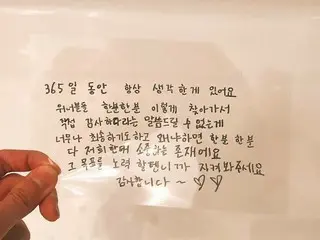 365일 동안 항상 생각한게 있어요
위너분들 한분한분 이렇게 찾아가서
직접 감사하다라는 말씀드릴 수 없는게
너무나 죄송하기도하고 왜냐하면 한분 한분
다 저희한테 소중하는 존재에요
그 목표를 노력 할테니까 지켜봐주세요
감사합니다 ~ ♡♡